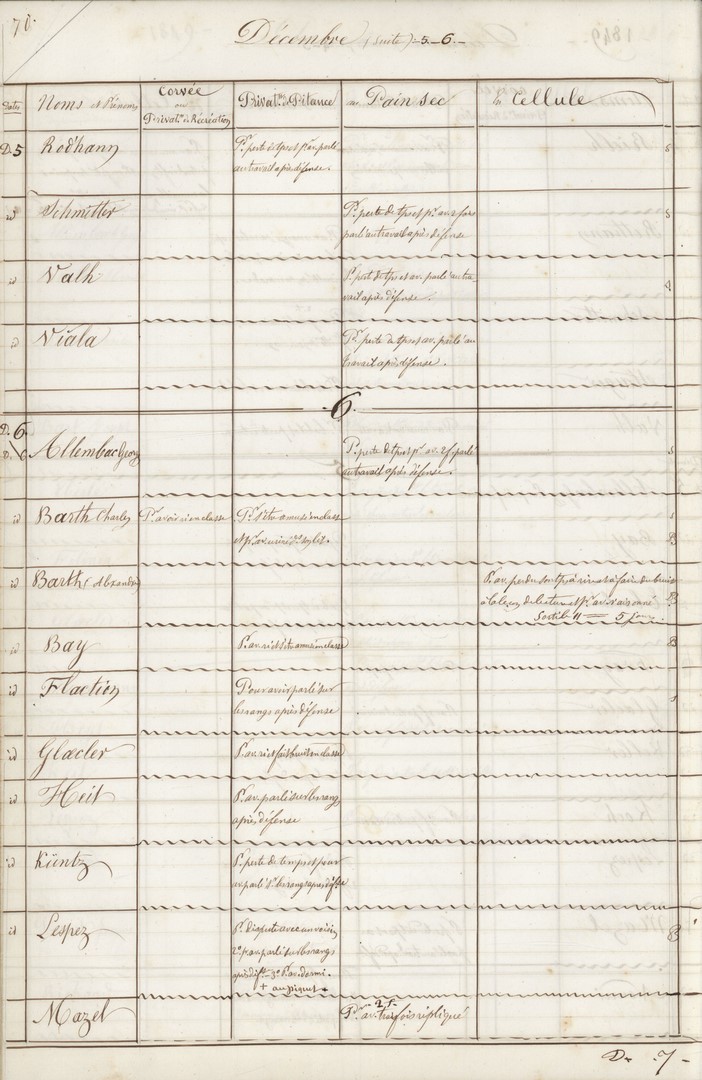 70.
Décembre (Suite) 5-6.-
Dates
Noms et Prénoms
Corvée
ou
Privat.on de Récréation
Privat.on de Pitance
au Pain sec
la Cellule
D. 5
Rodhann
Pr. perte de tps et pr. av. parlé
au travail après défense.
s
id
Schmitter
Pr. perte de tps et pr. av. 2 fois
parlé au travail après défense
s
id
Valh
Pr. perte de tps et av. parlé au tra-
vail après défense.
4
id
Viala
Pr. perte de tps et av. parlé au
travail après défense.
6.
D. 6
Allembac Georg
Pr. perte de tps et pr. av. 2 f. parlé
au travail après défense.
s
id
Barth Charles
Pr. avoir ri en classe
Pr. s'être amusé en classe
et pr. av.
s
B
id
Barth Alexandre
Pr. av. perdu son tps à rire et à faire du bruit
à la leçon de lecture et pr. av. raisonné
Sorti le 11 = 5 jours.
B
id
Bay
Pr. av. ri et s'être amusé en classe
B
id
Flaction
Pour avoir parlé sur
les rangs après défense
s
id
Glæcler
Pr. av. ri et fait bruit en classe
id
Heit
Pr. av. parlé sur les rangs
après défense
id
Küntz
Pr. perte de temps et pour
av. parlé sr. les rangs après défse
id
Lespez
Pr. dispute avec un voisin
2° pr. av. parlé sur les rangs
après défse - 3° Pr. av. dormi.
+ au piquet +
B
Mazel
2 f.
Pr. av. trois fois répliqué
Dre 7-